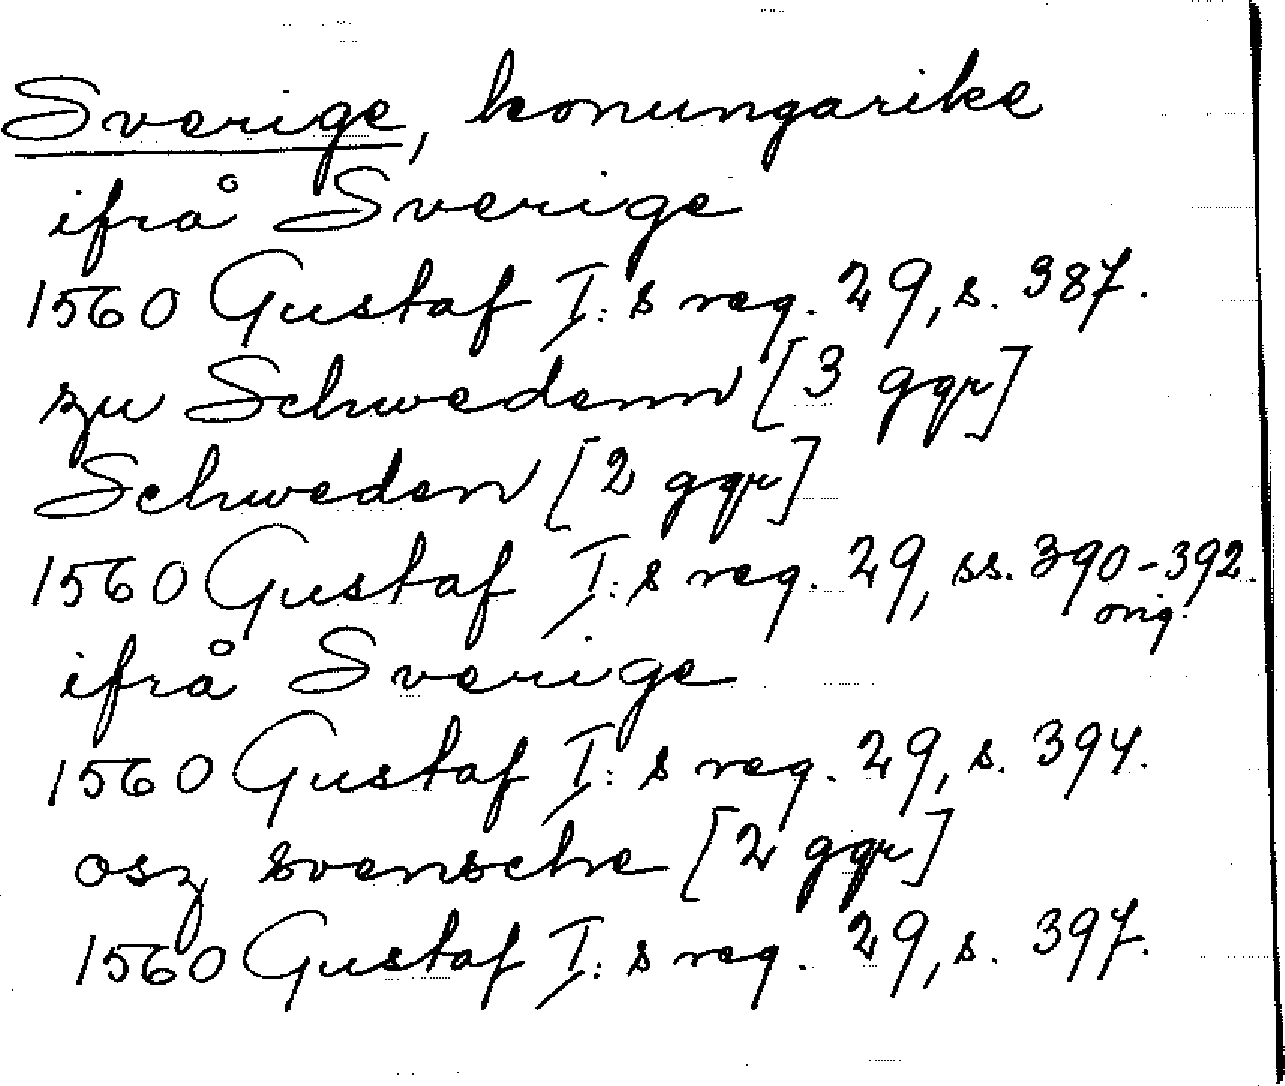 Sverige, konungarike
ifrå Sverige
1560 Gustaf I:s reg. 29, s. 387.
zu Schwedenn [3 ggr]
Schweden [2 ggr]
1560 Gustaf I:s reg. 29, ss. 390-392.
orig.
ifrå Sverige
1560 Gustaf I:s reg. 29, s. 394.
osz svensche [2 ggr]
1560 Gustaf I:s reg. 29, s. 397.